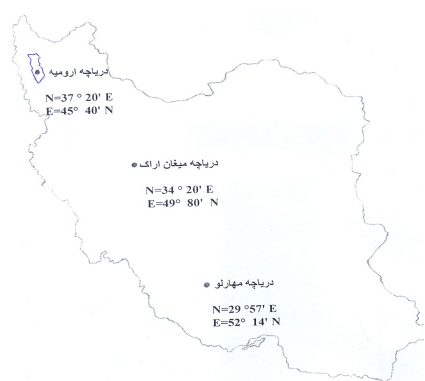 دریاچه ارومیه
N=37 ° 20' E
E=45° 40' N
دریاچه میغان اراک
N=34 ° 20' E
E=49° 80' N
دریاچه مهارلو
N=29 °57' E
E=52° 14' N